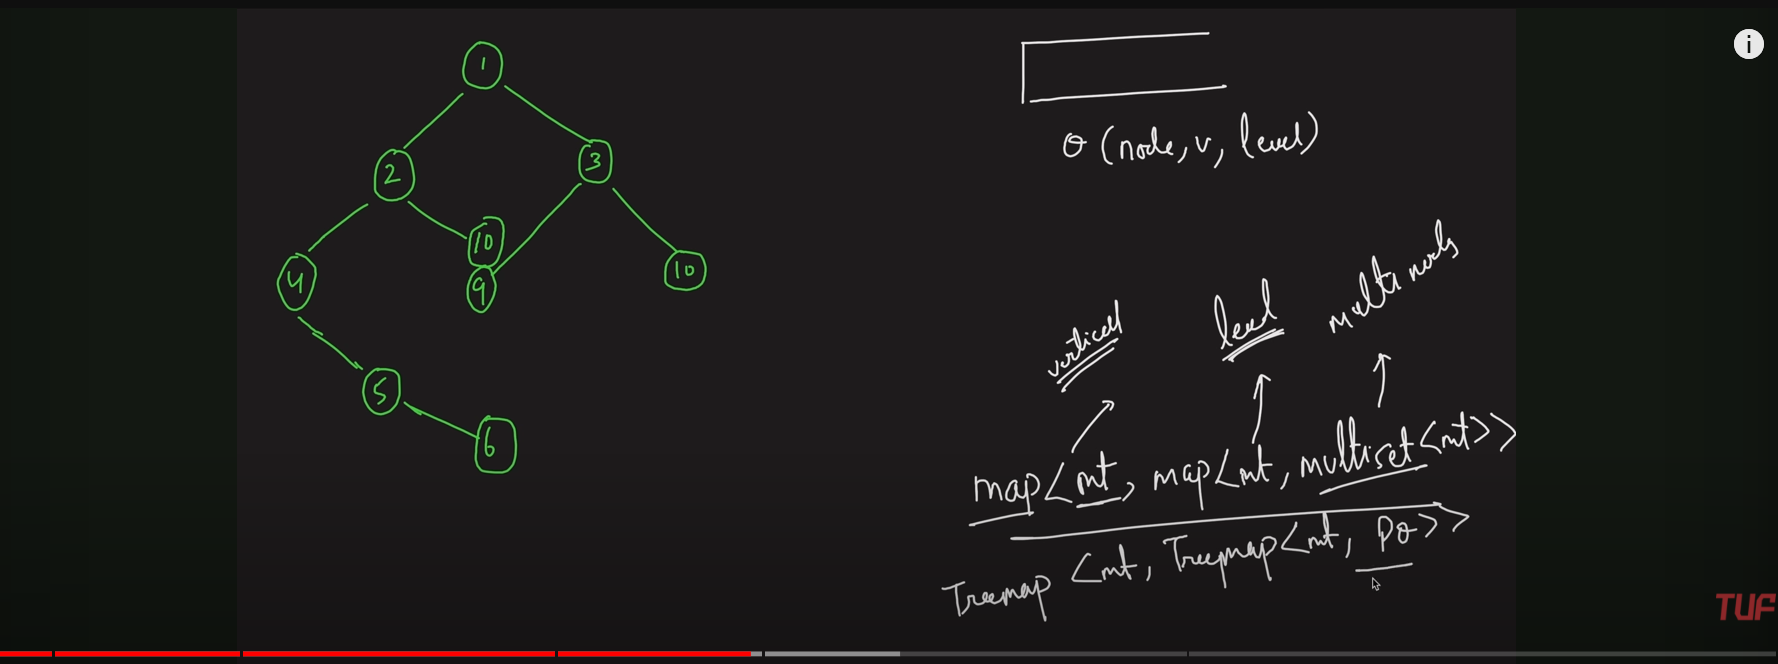 1
2
3
10
9
10
4
5
6
Q (node, v, level)
vertical
level
multinodes
map<int, map<int, multiset<int>>
Treemap <int, Treemap<int, PQ>>
i
TUF